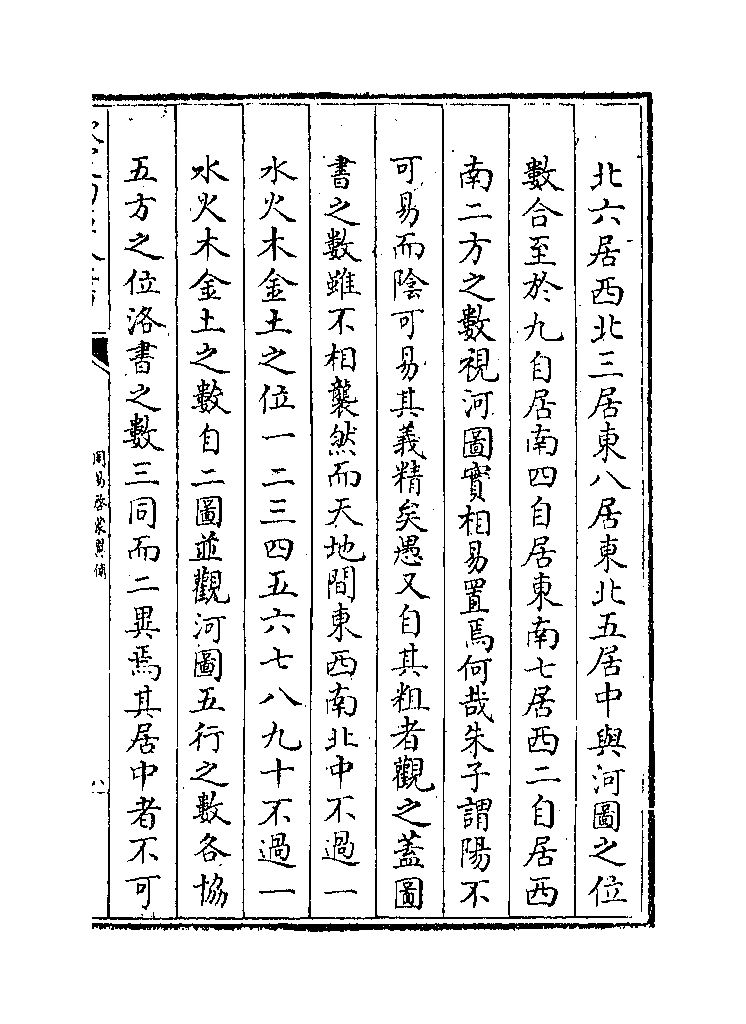 北六居西北三居東八居東北五居中與河圖之位
數合至於九自居南四自居東南七居西二自居西
南二方之數視河圖實相易置焉何哉朱子謂陽不
可易而陰可易其義精矣愚又自其粗者觀之蓋圖
書之數雖不相襲然而天地間東西南北中不過一
水火木金土之位一二三四五六七八九十不過一
水火木金土之數自二圖並觀河圖五行之數各協
五方之位洛書之數三同而二異焉其居中者不可
周易啓蒙翼傳